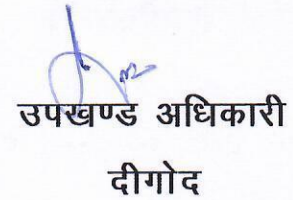 उपखण्ड अधिकारी
दीगोद